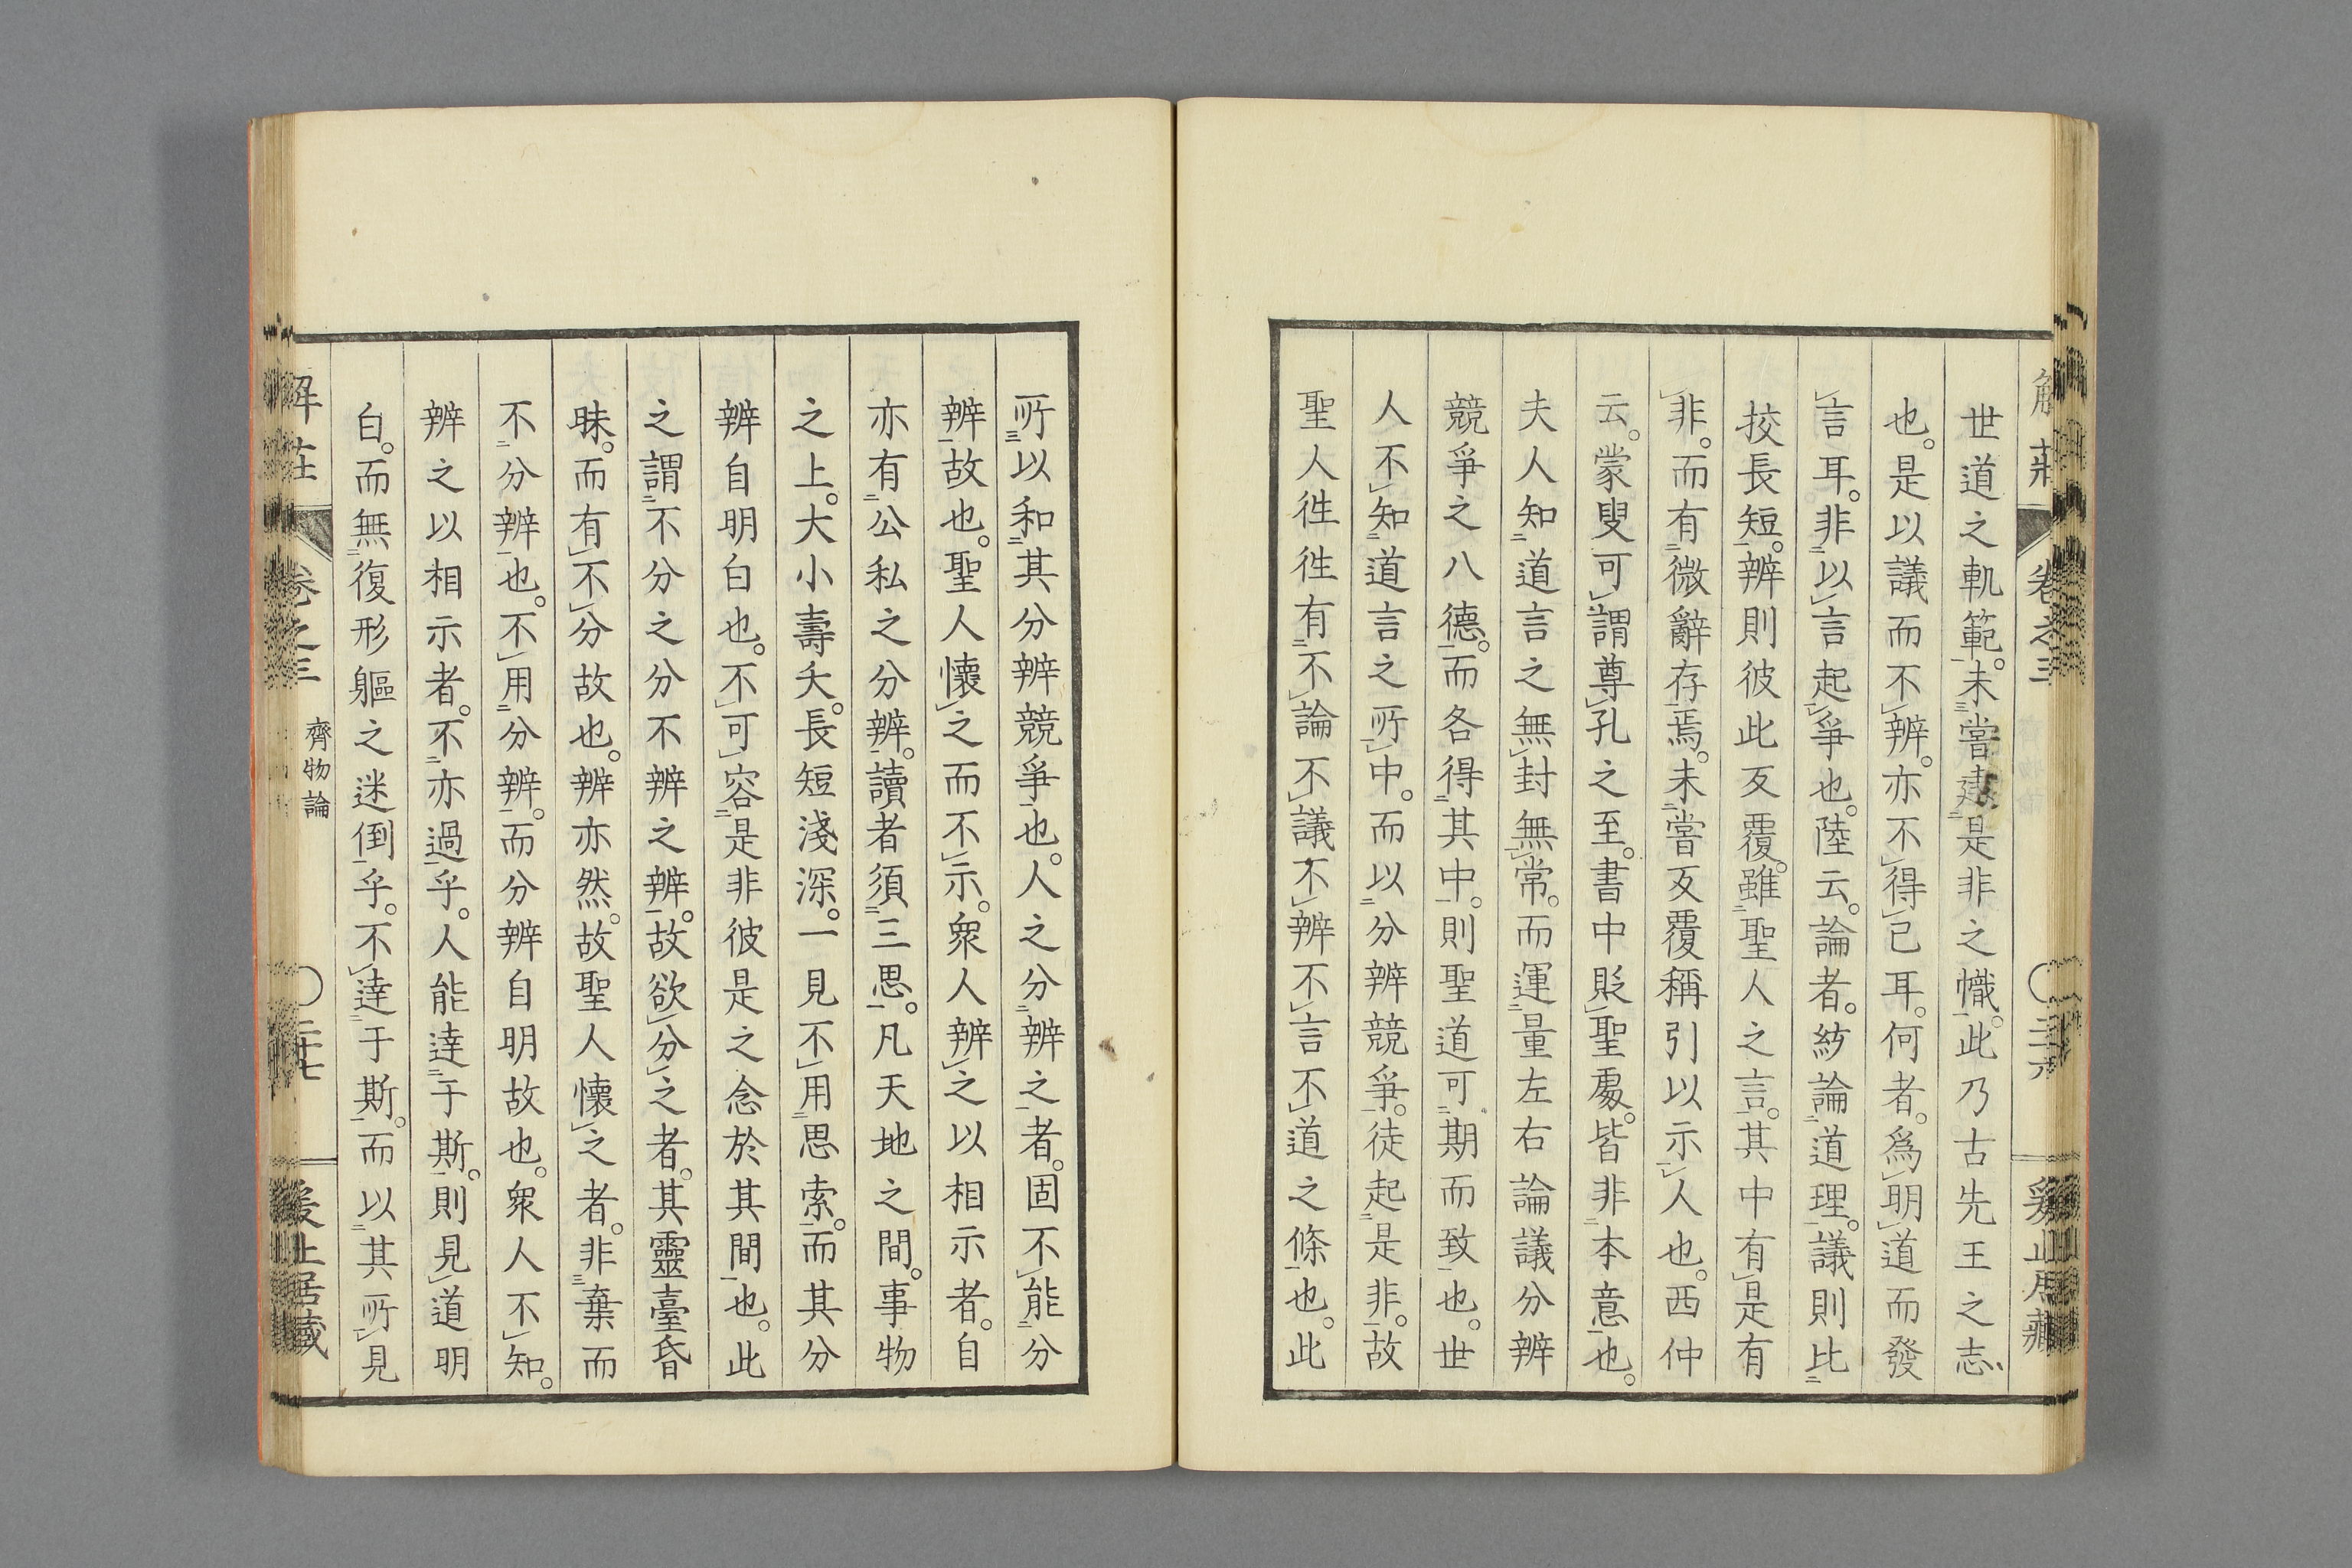 世道之軌範。未嘗建是非之幟。此乃古先王之志
也。是以議而不辨。亦不得已耳。何者。爲明道而發
言耳。非以言起爭也。陸云。論者。紡論道理。議則比
挍長短。辨則彼此反覆。雖聖人之言。其中有是有
非。而有微辭存焉。未嘗反覆稱引以示人也。西仲
云。蒙叟可謂尊孔之至。書中貶聖處。皆非本意也。
夫人知道言之無封無常。而運量左右論議分辨
競爭之八德。而各得其中。則聖道可期而致也。世
人不知道言之所中。而以分辨競爭。徒起是非。故
聖人徃徃有不論不議不辨不言不道之條也。此
所以和其分辨競爭也。人之分辨之者。固不能分
辨故也。聖人懷之而不示。衆人辨之以相示者。自
亦有公私之分辨。讀者須三思。凡天地之間。事物
之上。大小壽夭。長短淺深。一見不用思索。而其分
辨自明白也。不可容是非彼是之念於其間也。此
之謂不分之分不辨之辨。故欲分之者。其靈臺昏
昧。而有不分故也。辨亦然。故聖人懷之者。非棄而
不分辨也。不用分辨。而分辨自明故也。衆人不知。
辨之以相示者。不亦過乎。人能達于斯。則見道明
白。而無復形軀之迷倒乎。不達于斯。而以其所見
解莊 卷之三 齊物論 二十七